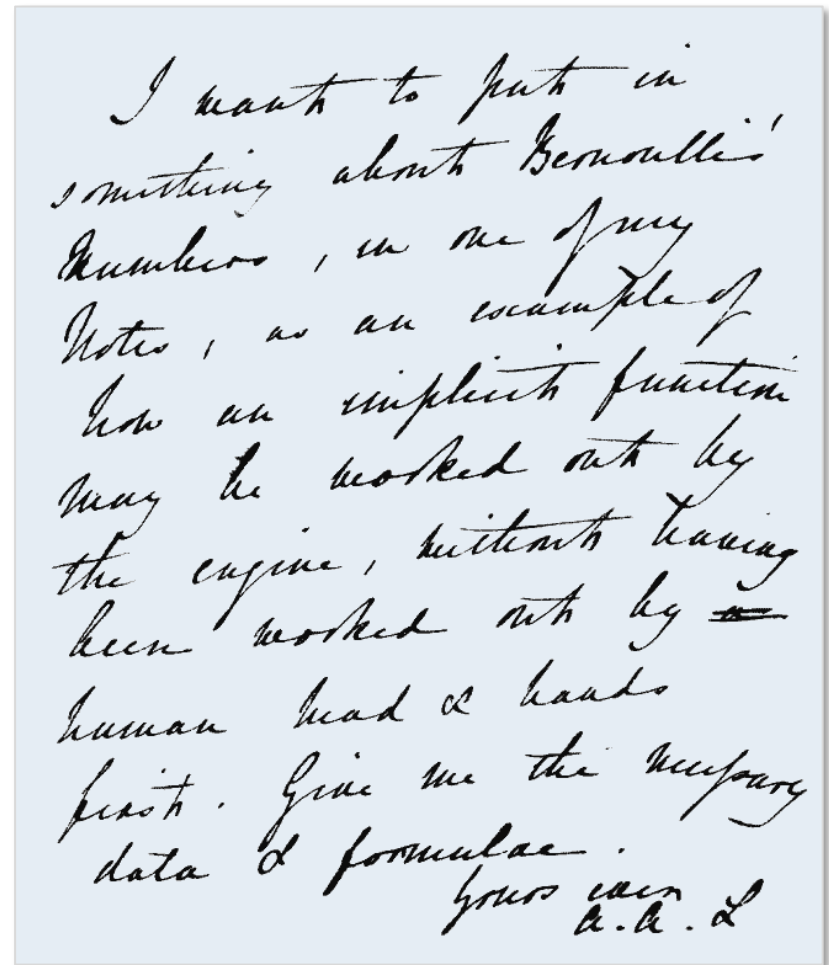 I want to put in
something about Bernoulli's
Numbers, in one of my
Notes, as an example of
how an implicit function
may be worked out by
the engine, without having
been worked out by a
human head & hands
first. Give me the necessary
data & formulae.
Yours ever
A. A. L